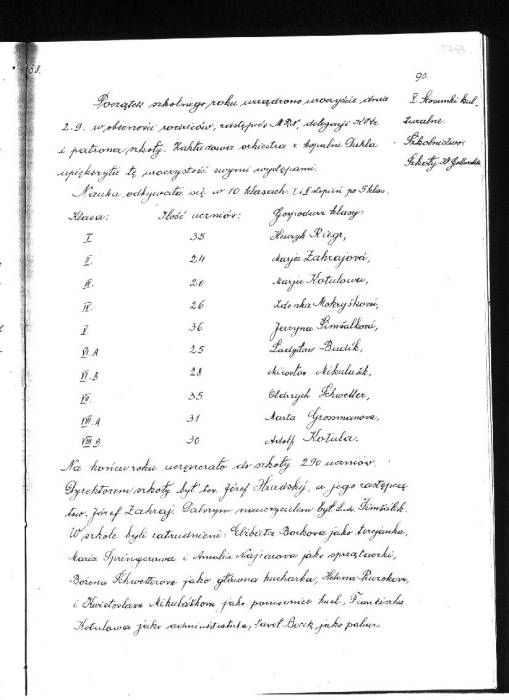 178
58.
90.
Początek szkolnego roku urządzono uroczyście dnia
2.9. w obecności rodziców, zastępców MRN, delegacji
i patrona szkoły. Zakładowa orkiestra z kopalni Dukla
upiększyła tę uroczystość swymi występami.
Nauka odbywała się w 10 klasach. I i II stopień po 5 klas.
V. Stosunki kul-
turalne.
Szkolnictwo.
Szkoły
Klasa: Ilość uczniów: Gospodarz klasy:
I 35 Henryk Riegr,
II. 24 Marja Zahrajová,
III. 20 Marja Kotulowa,
IV. 26 Zdenka Mokryšková,
V 36 Jarzyna Šimšalková,
VI.A 25 Ladysław Budík,
VI.B 28 Mirosław Mikulašk,
VII. 35 Oldrzych Schwetter,
VIII.A 31 Marta Grossmanova,
VIII.B 30 Adolf Kotula.
Na końcu roku uczęszczało do szkoły 290 uczniów.
Dyrektorem szkoły był tow. Józef Hradský, a jego zastępcą
tow. Józef Zahraj. Dalszym nauczycielem był Lud. Šimšálek.
W szkole byli zatrudnieni: Elżbieta Bockova jako
Maria Springerowa i Amalia Najzarova jako sprzątaczki,
Bożena Schwetterova jako główna kucharka, Helena
i Kwietosława Mikuláškova jako pomocnice kuch., Franciszka
Kotulowa jako administratorka, Paweł Bocek, jako palacz